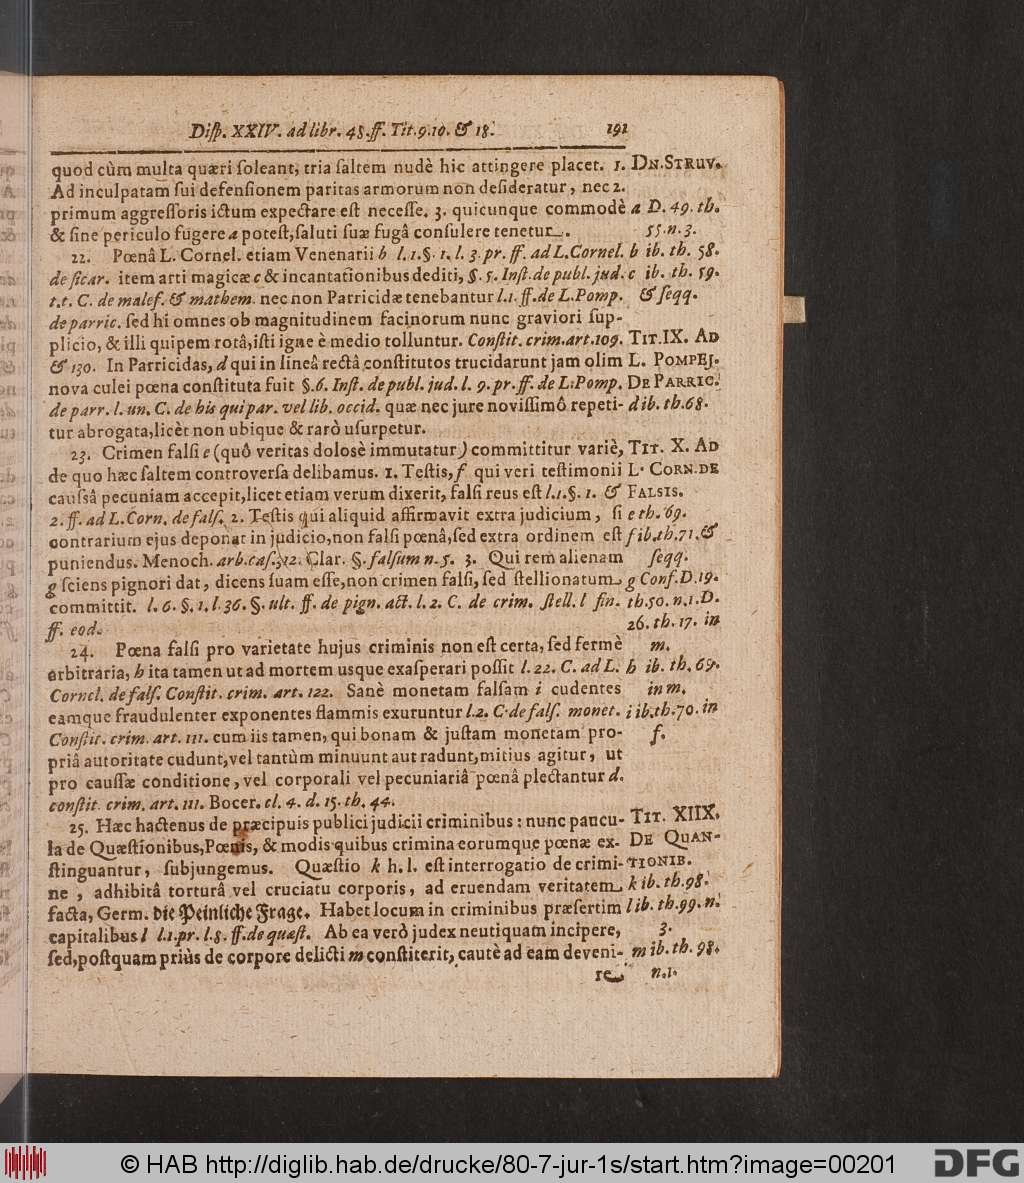 Disp. XXIV. ad libr. 48. ff. Tit. 9. 10. & 18. 191
quod cùm multa quæri ſoleant, tria ſaltem nudè hic attingere placet. 1. DN. STRUV.
Ad inculpatam ſui defenſionem paritas armorum non deſideratur, nec 2.
primum aggreſſoris ictum expectare eſt neceſſe. 3. quicunque commodè a D. 49. th.
& ſine periculo fugere a poteſt, ſaluti ſuæ fugâ conſulere tenetur. 55. n. 3.
22. Pœnâ L. Cornel. etiam Venenarii b l. 1. §. 1. l. 3. pr. ff. ad L. Cornel. b ib. th. 58.
de ſicar. item arti magicæ c & incantationibus dediti, §. 5. Inſt. de publ. jud. c ib. th. 59.
t. t. C. de malef. & mathem. nec non Parricidæ tenebantur l. 1. ff. de L. Pomp. & ſeqq.
de parric. ſed hi omnes ob magnitudinem facinorum nunc graviori ſup-
plicio, & illi quipem rotâ, iſti igne è medio tolluntur. Conſtit. crim. art. 109. TIT. IX. AD
& 130. In Parricidas, d qui in lineâ rectâ conſtitutos trucidarunt jam olim L. POMPEJ.
nova culei pœna conſtituta fuit §. 6. Inſt. de publ. jud. l. 9. pr. ff. de L. Pomp. DE PARRIC.
de parr. l. un. C. de his qui par. vel lib. occid. quæ nec jure noviſſimô repeti- d ib. th. 68.
tur abrogata, licèt non ubique & rarò uſurpetur.
23. Crimen falſi e (quô veritas dolosè immutatur) committitur variè, TIT. X. AD
de quo hæc ſaltem controverſa delibamus. 1. Teſtis, f qui veri teſtimonii L. CORN. DE
cauſsâ pecuniam accepit, licet etiam verum dixerit, falſi reus eſt l. 1. §. 1. & FALSIS.
2. ff. ad L. Corn. de falſ. 2. Teſtis qui aliquid affirmavit extra judicium, ſi e th. 69.
contrarium ejus deponat in judicio, non falſi pœnâ, ſed extra ordinem eſt f ib. th. 71. &
puniendus. Menoch. arb. caſ. 312. Clar. §. falſum n. 5. 3. Qui rem alienam ſeqq.
g ſciens pignori dat, dicens ſuam eſſe, non crimen falſi, ſed ſtellionatum g Conf. D. 19.
committit. l. 6. §. 1. l. 36. §. ult. ff. de pign. act. l. 2. C. de crim. ſtell. l fin. th. 50. n. 1. D.
ff. eod. 26. th. 17. in
24. Pœna falſi pro varietate hujus criminis non eſt certa, ſed fermè m.
arbitraria, h ita tamen ut ad mortem usque exaſperari poſſit l. 22. C. ad L. h ib. th. 69.
Cornel. de falſ. Conſtit. crim. art. 122. Sanè monetam falſam i cudentes in m.
eamque fraudulenter exponentes flammis exuruntur l. 2. C. de falſ. monet. i ib. th. 70. in
Conſtit. crim. art. 111. cum iis tamen, qui bonam & juſtam monetam pro- f.
priâ autoritate cudunt, vel tantùm minuunt aut radunt, mitius agitur, ut
pro cauſſæ conditione, vel corporali vel pecuniariâ pœnâ plectantur d.
conſtit. crim. art. 111. Bocer. cl. 4. d. 15. th. 44.
25. Hæc hactenus de præcipuis publici judicii criminibus: nunc paucu- TIT. XIIX.
la de Quæſtionibus, Pœnis, & modis quibus crimina eorumque pœnæ ex- DE QUAN-
ſtinguantur, ſubjungemus. Quæſtio k h. l. eſt interrogatio de crimi- TIONIB.
ne, adhibitâ torturâ vel cruciatu corporis, ad eruendam veritatem k ib. th. 98.
facta, Germ. die Peinliche Frage. Habet locum in criminibus præſertim l ib. th. 99. n.
capitalibus l l. 1. pr. l. 8. ff. de quæſt. Ab ea verò judex neutiquam incipere, 3.
ſed, poſtquam priùs de corpore delicti m conſtiterit, cautè ad eam deveni- m ib. th. 98.
re n. 1.
© HAB http://diglib.hab.de/drucke/80-7-jur-1s/start.htm?image=00201 DFG